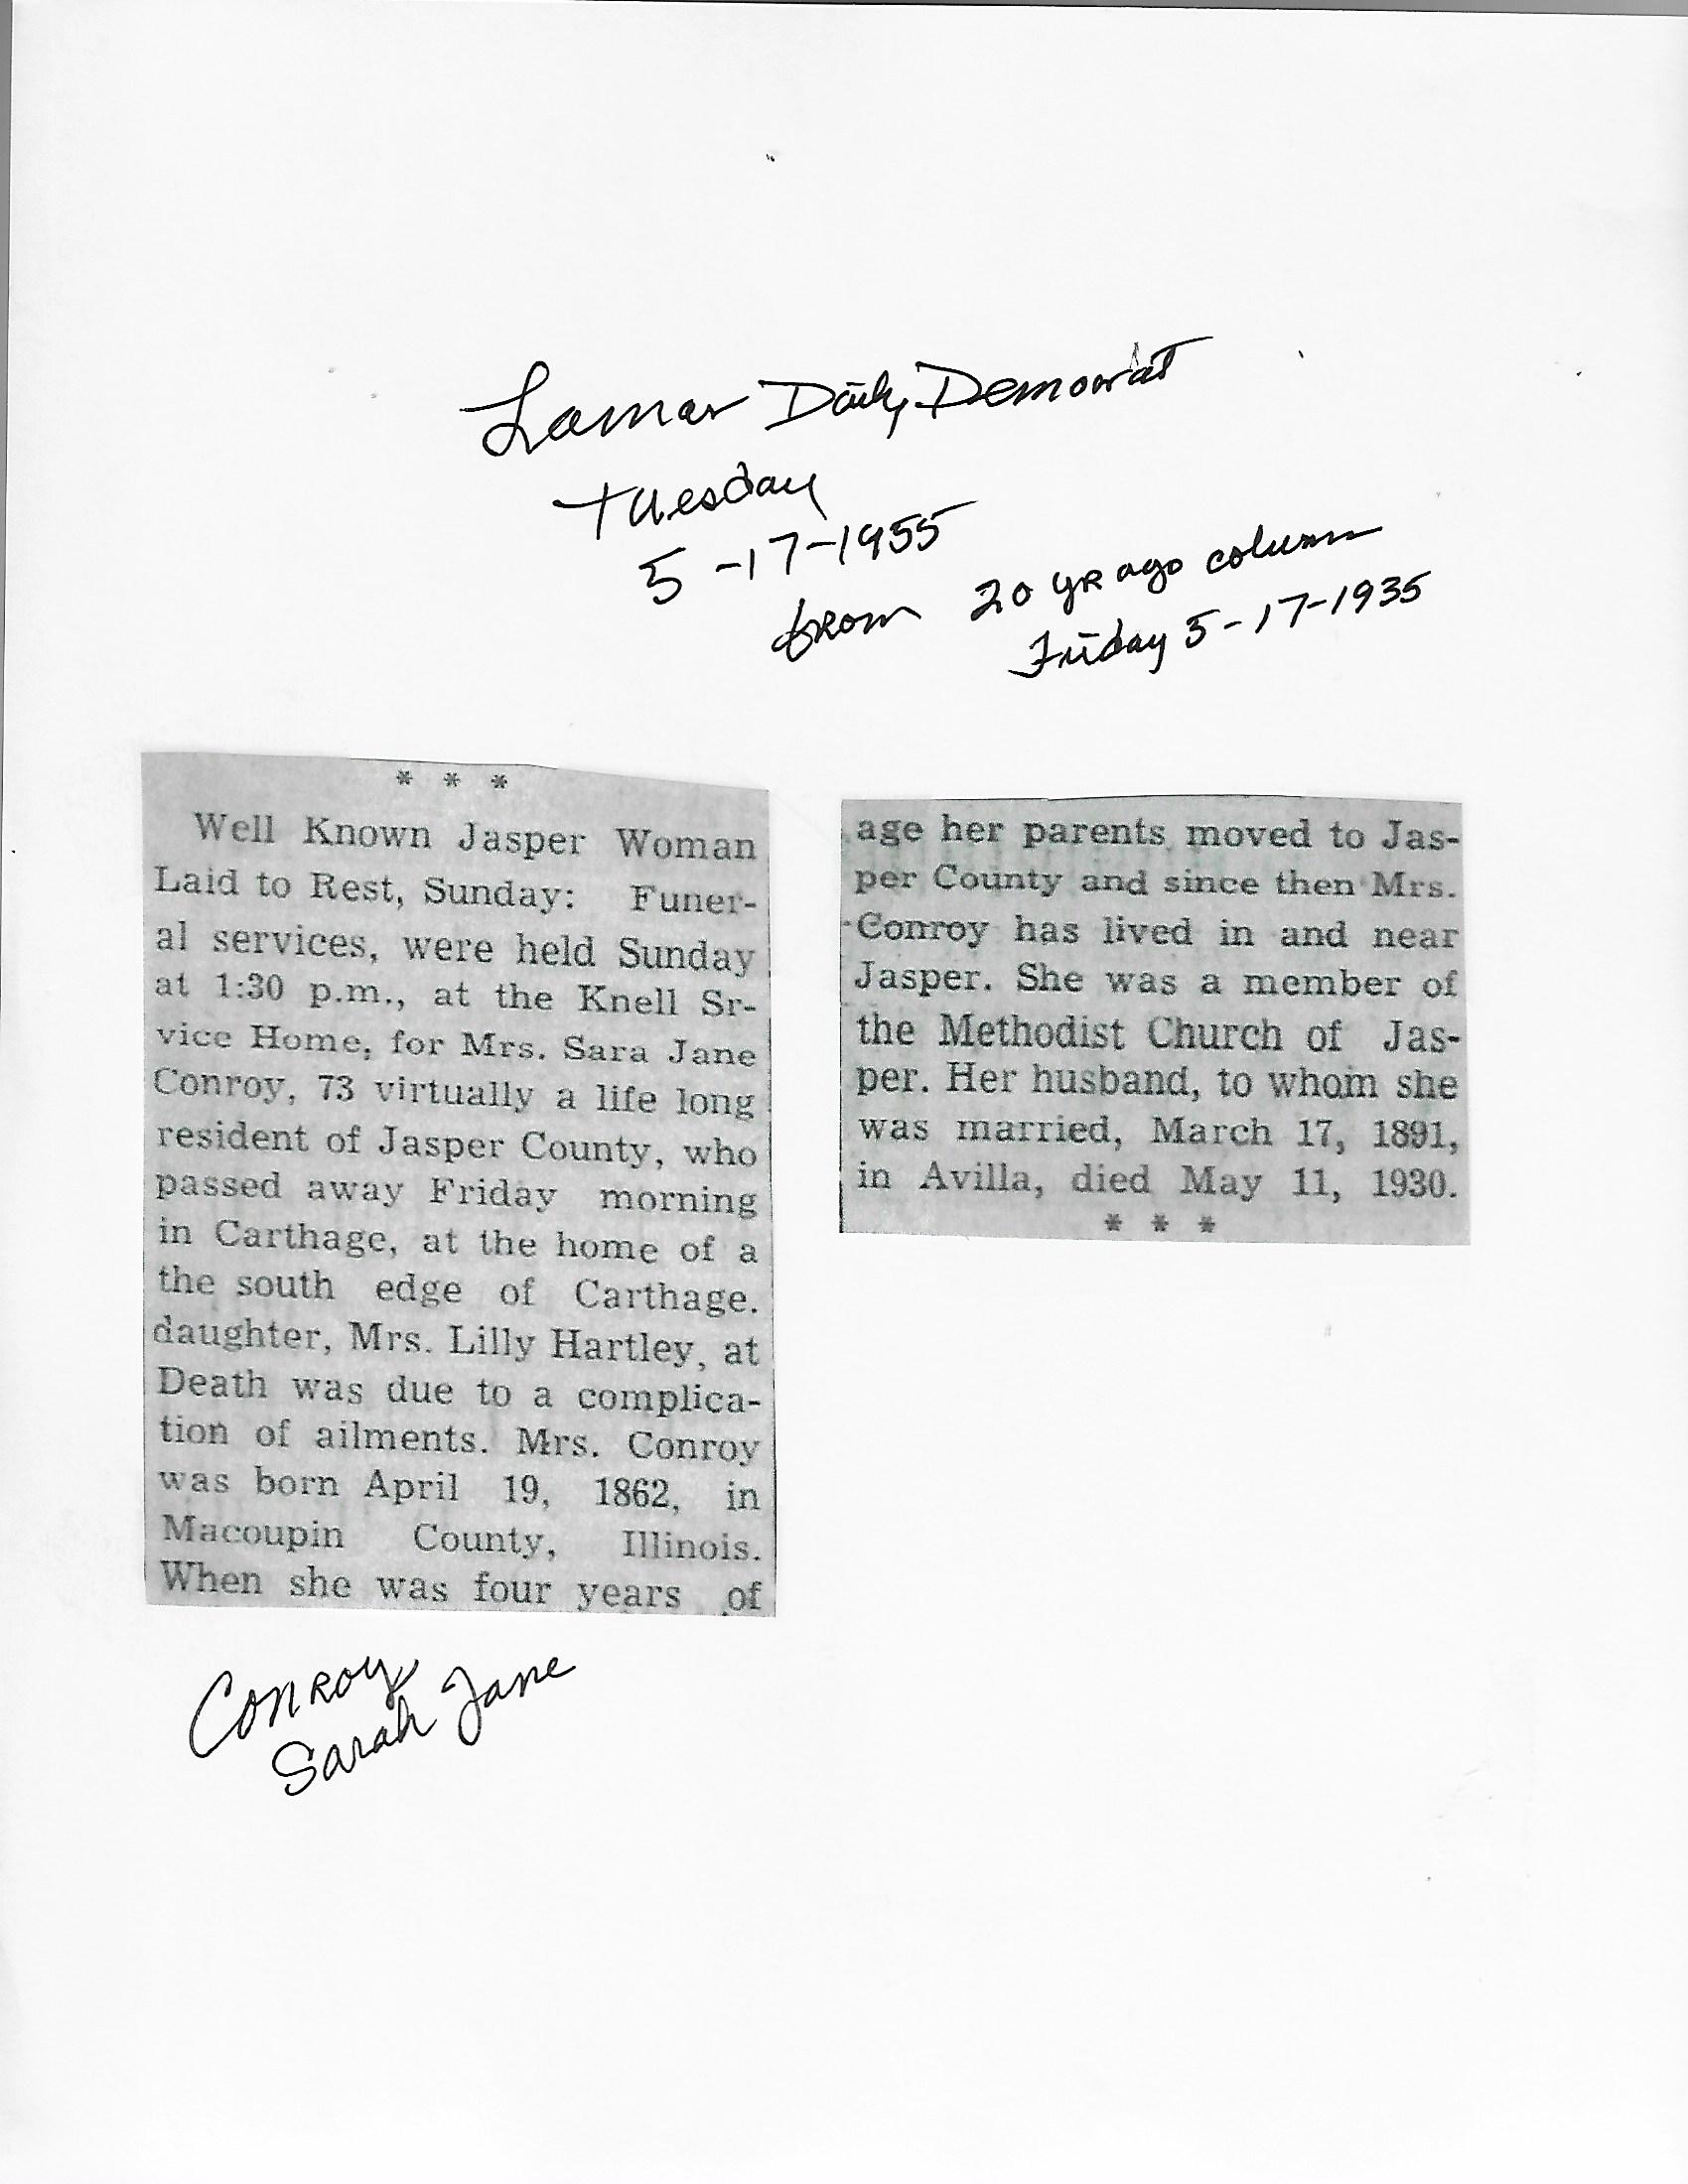 Lamar Daily Democrat
Tuesday
5-17-1955
from 20 yr ago column
Friday 5-17-1935
* * *
Well Known Jasper Woman
Laid to Rest, Sunday: Funer-
al services, were held Sunday
at 1:30 p.m., at the Knell Sr-
vice Home, for Mrs. Sara Jane
Conroy, 73 virtually a life long
resident of Jasper County, who
passed away Friday morning
in Carthage, at the home of a
the south edge of Carthage.
daughter, Mrs. Lilly Hartley, at
Death was due to a complica-
tion of ailments. Mrs. Conroy
was born April 19, 1862, in
Macoupin County, Illinois.
When she was four years of
age her parents moved to Jas-
per County and since then Mrs.
Conroy has lived in and near
Jasper. She was a member of
the Methodist Church of Jas-
per. Her husband, to whom she
was married, March 17, 1891,
in Avilla, died May 11, 1930.
* * *
Conroy
Sarah Jane